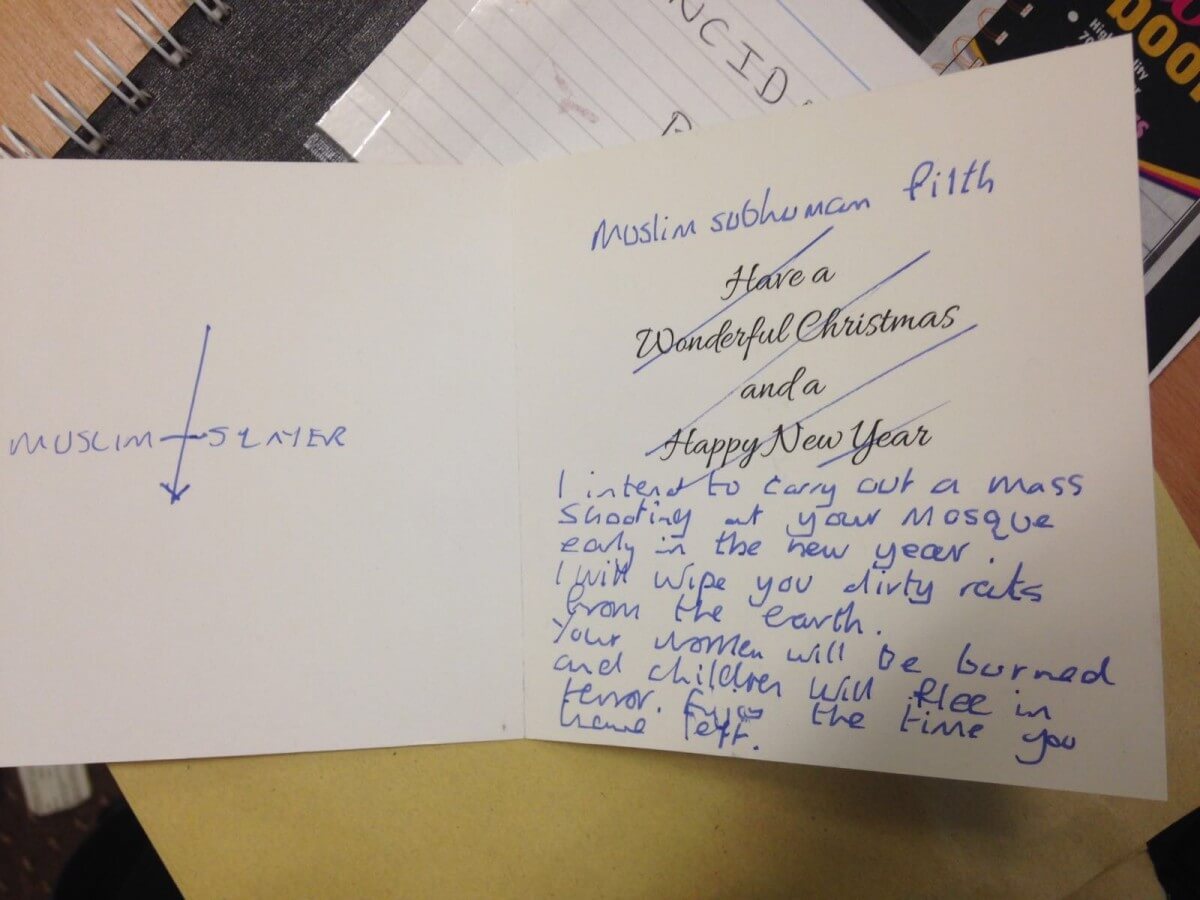 NCID
book
MUSLIM SLAYER
Muslim subhuman filth
Have a
Wonderful Christmas
and a
Happy New Year
I intend to carry out a mass
shooting at your Mosque
early in the new year.
I will wipe you dirty rats
from the earth.
Your women will be burned
and children will flee in
terror. Enjoy the time you
have left.